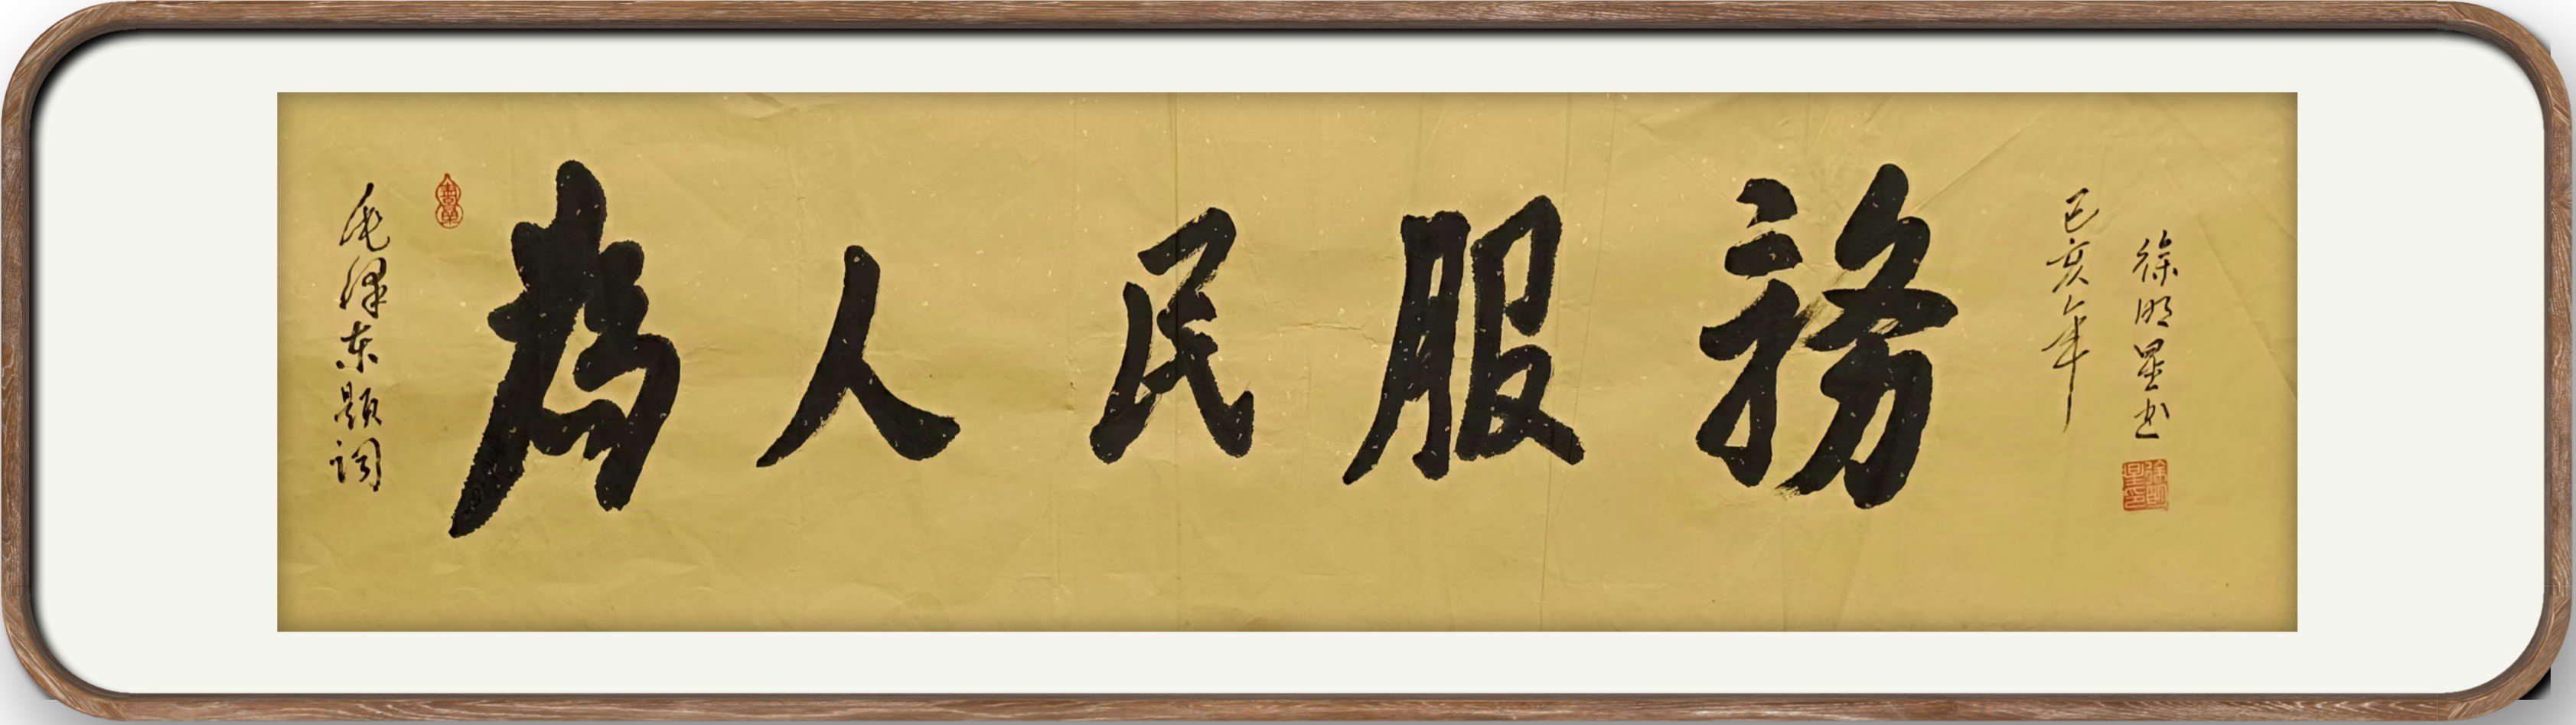 毛澤东题词
為人民服務
己亥年
徐明星书
徐明星印